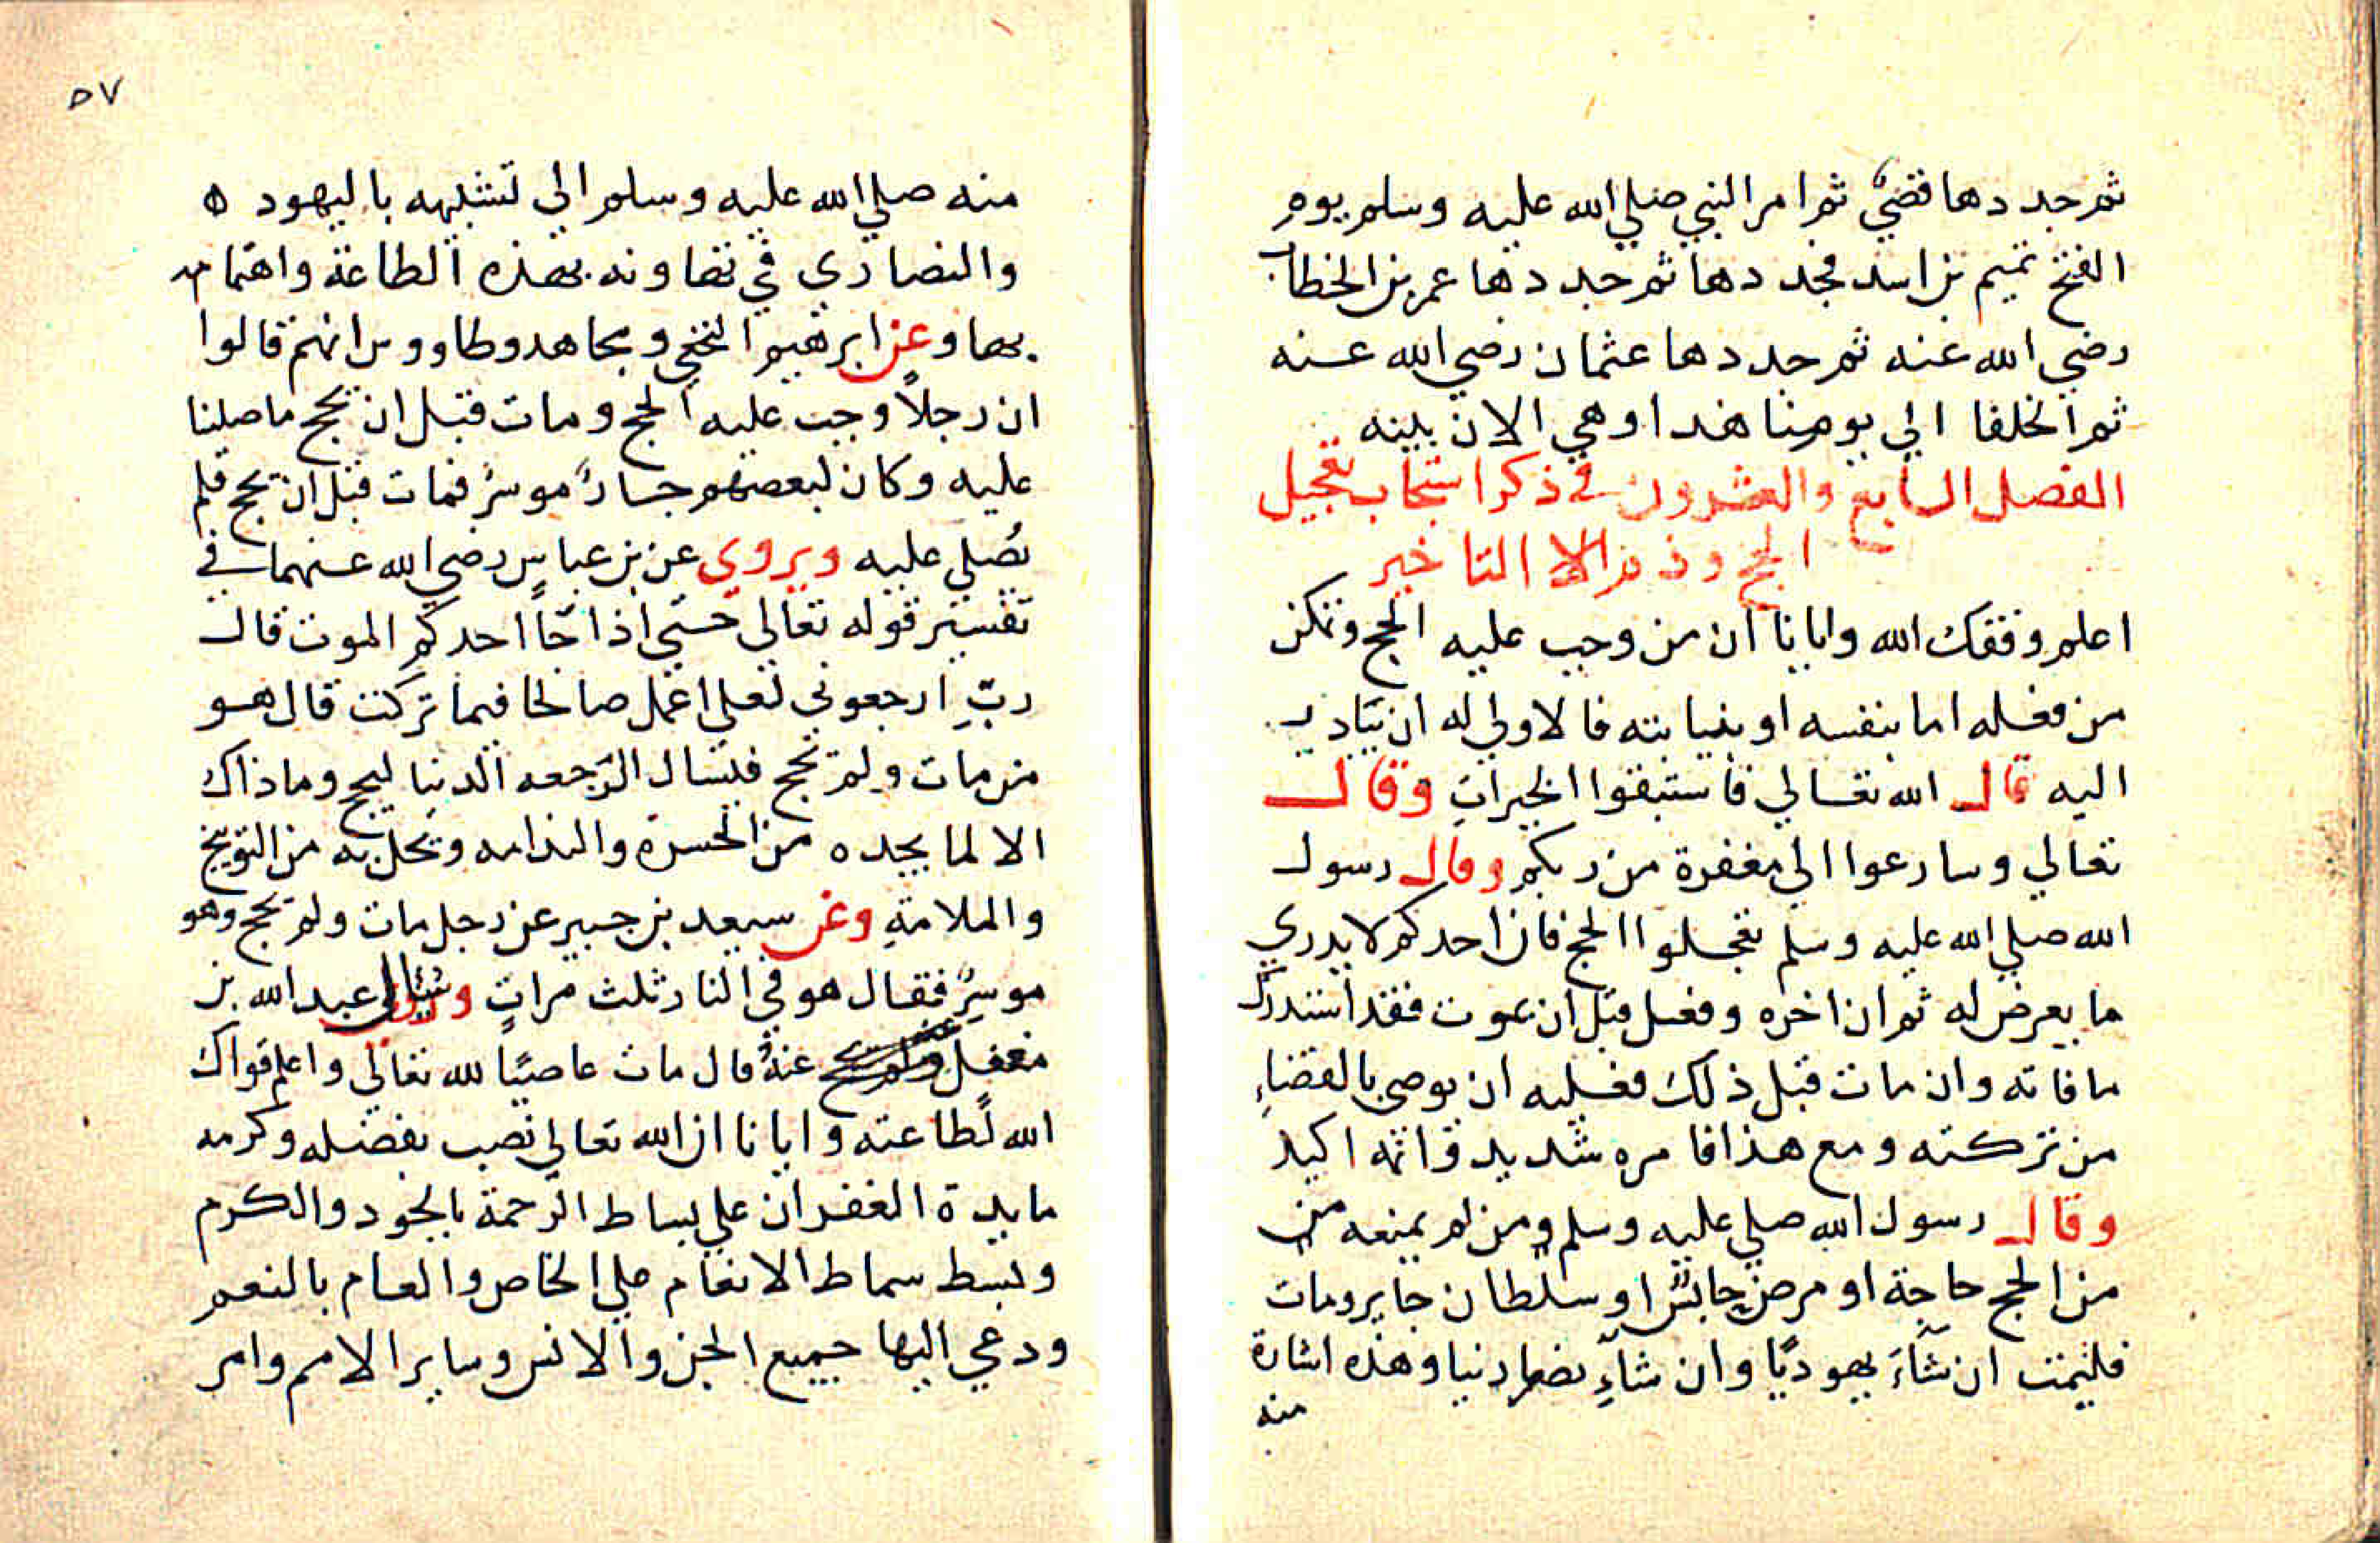 ثم جددها قضي ثم امر النبي صلي الله عليه وسلم يوم
الفتح تميم بن اسد فجددها ثم جددها عمر بن الخطاب
رضي الله عنه ثم جددها عثمان رضي الله عنه
ثم الخلفا الي يومنا هذا وهي الان بينه
الفصل السابع والعشرون في ذكر استحباب تعجيل
الحج وذم التاخير
اعلم وفقك الله وايانا ان من وجب عليه الحج وتمكن
من فعله اما بنفسه او بنيابته فالاولي له ان يبادر
اليه قال الله تعالي فاستبقوا الخيرات وقال
تعالي وسارعوا الي مغفرة من ربكم وقال رسول
الله صلي الله عليه وسلم تعجلوا الحج فان احدكم لا يدري
ما يعرض له ثم ان اخره وفعل قبل ان يموت فقد استدرك
ما فاته وان مات قبل ذلك فعليه ان يوصي بالقضاء
من تركته ومع هذا فامره شديد واثمه اكيد
وقال رسول الله صلي عليه وسلم ومن لم يمنعه من
من الحج حاجة او مرض حابس او سلطان جاير ومات
فليمت ان شآء يهوديًا وان شآء نصرانيا وهذه اشارة
منه
٥٧
منه صلي الله عليه وسلم الي تشبيهه باليهود ه
والنصاري في تهاونه بهذه الطاعة واهتمامه
بها وعن ابرهيم النخعي ومجاهد وطاووس انهم قالوا
ان رجلاً وجب عليه الحج ومات قبل ان يحج ما صلينا
عليه وكان لبعضهم جار موسرٌ فمات قبل ان يحج فلم
يُصلي عليه ويروي عن بن عباس رضي الله عنهما في
تفسير قوله تعالي حتي اذا جآ احدكم الموت قال
ربّ ارجعوني لعلي اعمل صالحا فيما تركت قال هو
من مات ولم يحج فيسال الرّجعه الدنيا ليحج وما ذاك
الا لما يجده من الحسرة والندامه ويحل به من التوبيخ
والملامة وعن سعيد بن جبير عن رجل مات ولم يحج وهو
موسرٌ فقال هو في النار ثلث مرات وسئال عبد الله بن
مغفل عنهُ قال مات عاصيًا لله تعالي واعلم قواك
الله لطاعته وايانا ان الله تعالي نصب بفضله وكرمه
مايدة الغفران علي بساط الرحمة بالجود والكرم
وبسط سماط الانعام علي الخاص والعام بالنعم
ودعي اليها جميع الجن والانس وساير الامم وامر